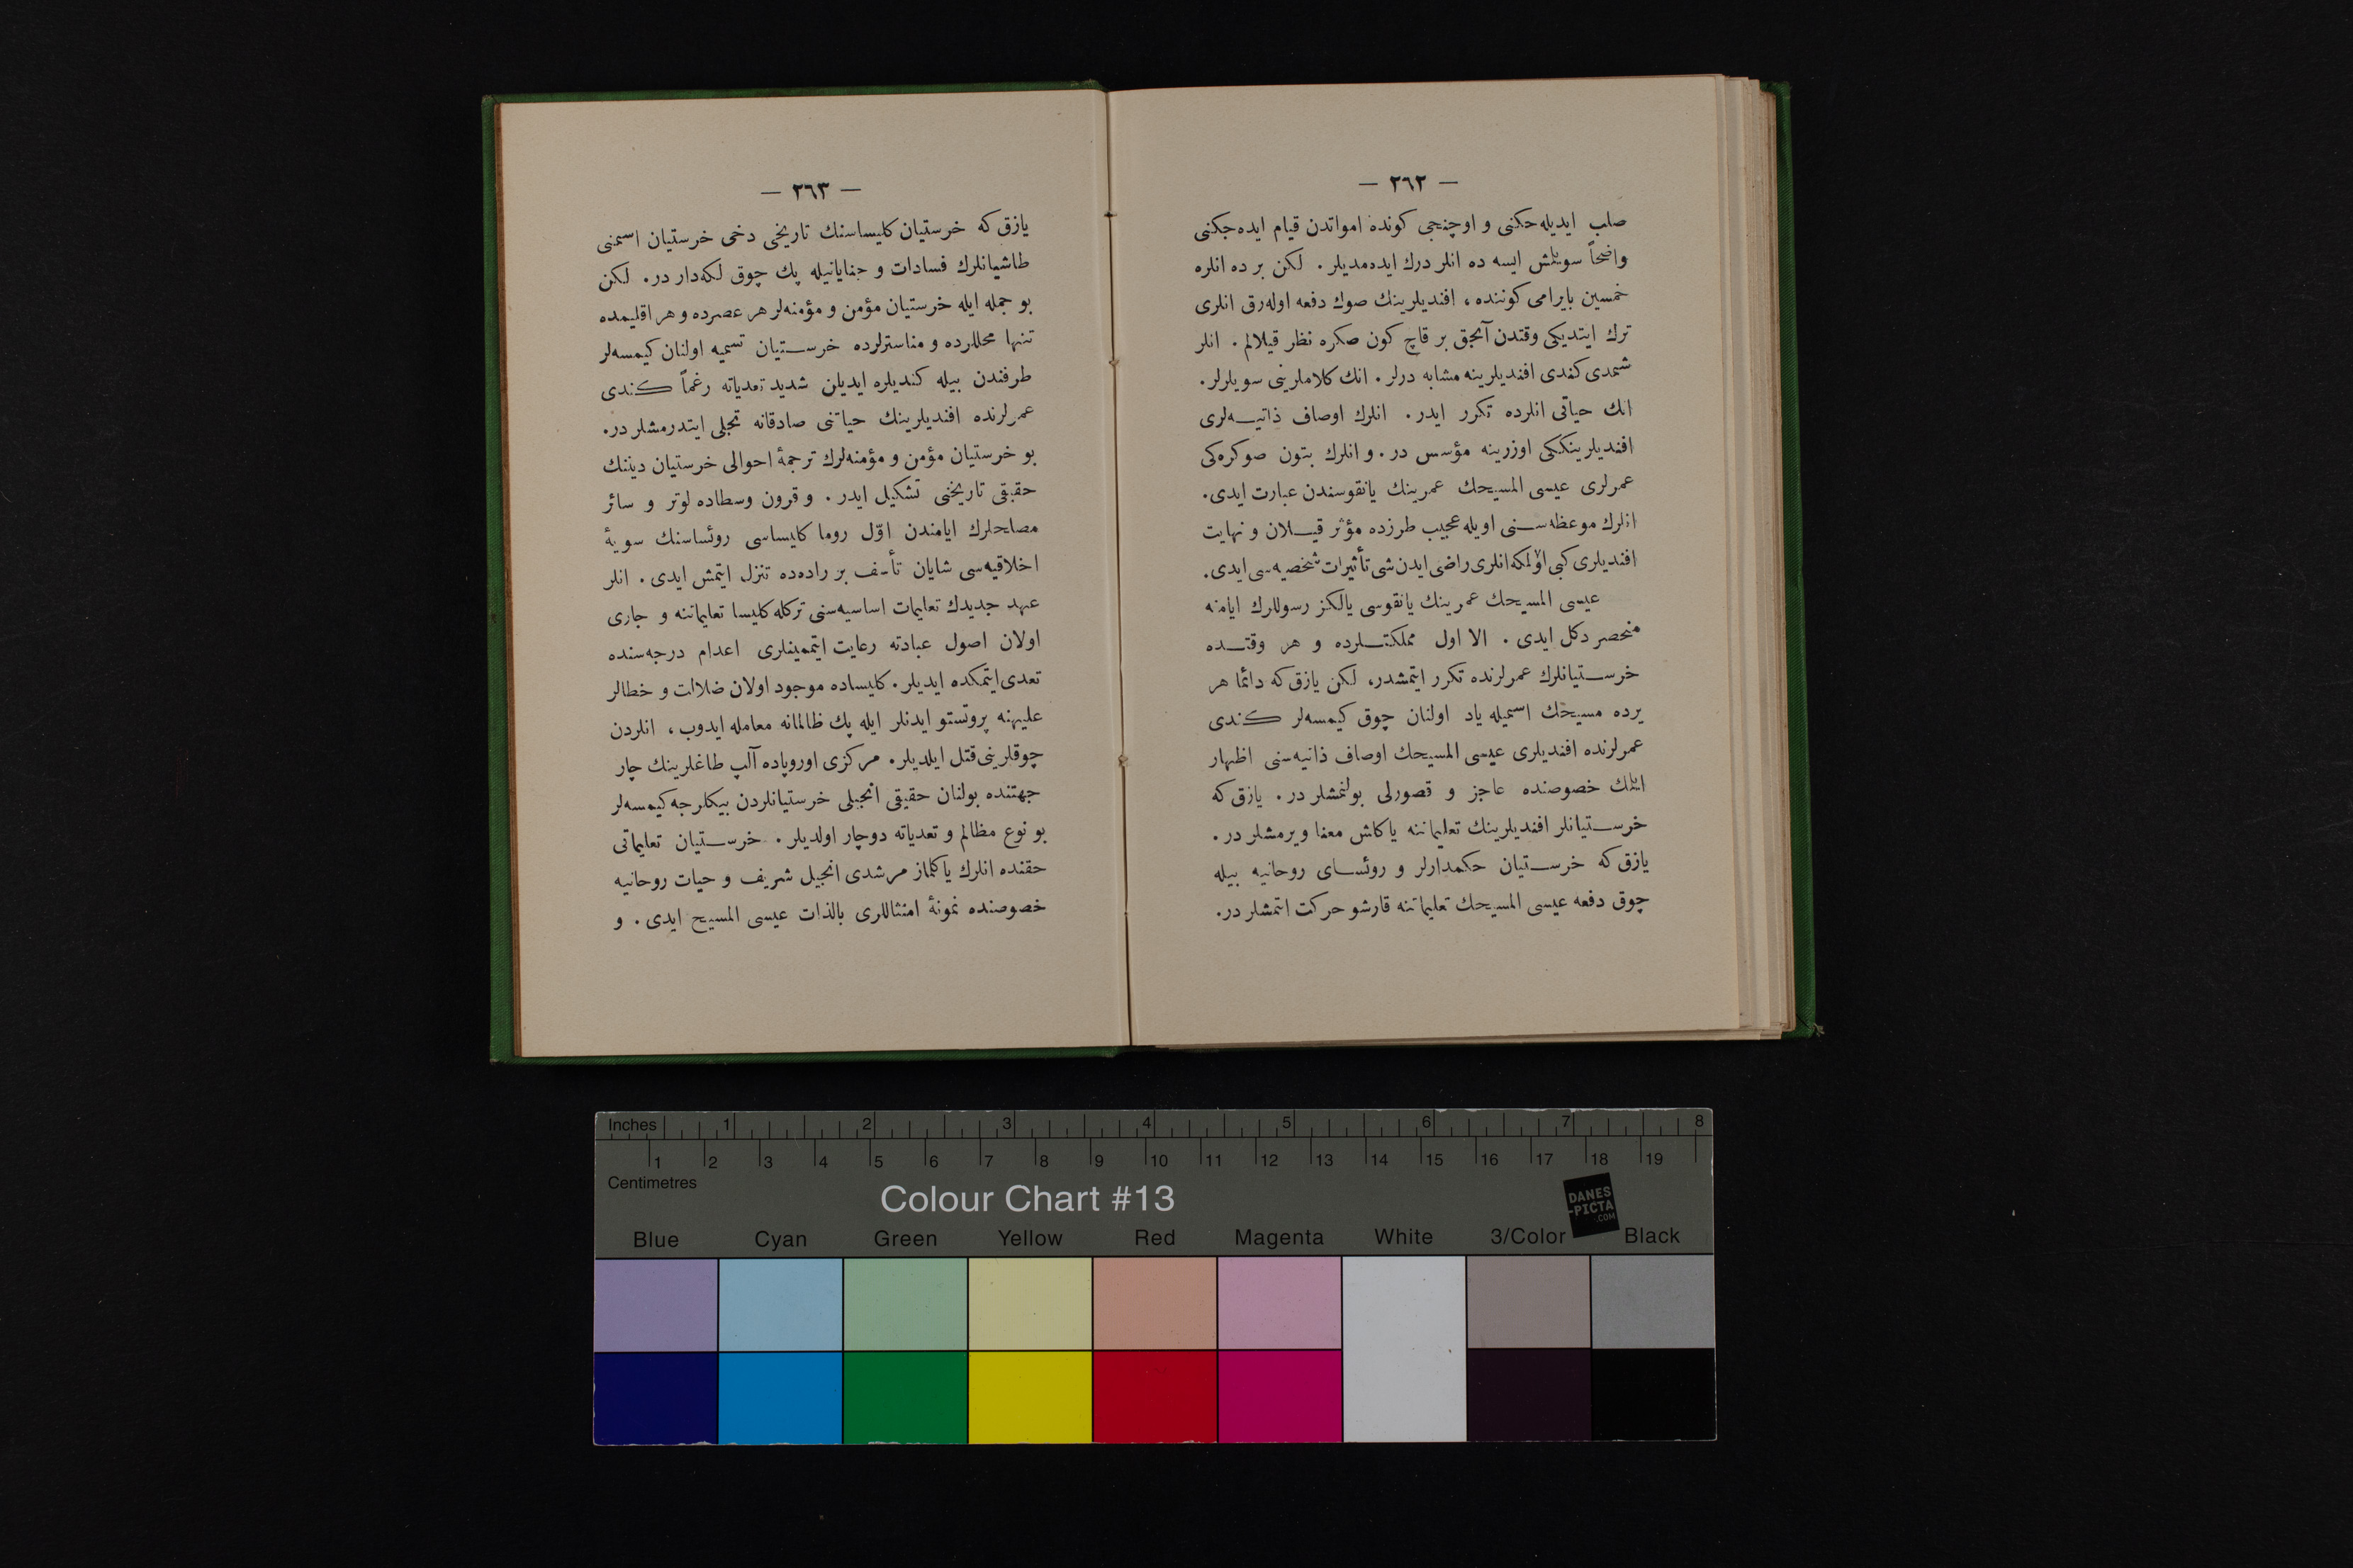 — ٢٦٢ —
صلب ايديله‌جكنى و اوچنجى كونده امواتدن قيام ايده‌جكنى
واضحاً سويلمش ايسه ده انلر درك ايده‌مديلر. لكن بر ده انلره
خمسين بايرامى كوننده، افنديلرينك صوك دفعه اوله‌رق انلرى
ترك ايتديكى وقتدن آنجق بر قاچ كون صكره نظر قيلالم. انلر
شمدى كندى افنديلرينه مشابه درلر. انك كلاملرينى سويلرلر.
انك حياتى انلرده تكرر ايدر. انلرك اوصاف ذاتيه‌لرى
افنديلرينككى اوزرينه مؤسس در. و انلرك بتون صوكره‌كى
عمرلرى عيسى المسيحك عمرينك يانقوسندن عبارت ايدى.
انلرك موعظه‌سنى اويله عجيب طرزده مؤثر قيلان و نهايت
افنديلرى كبى اولمكه انلرى راضى ايدن شى تأثيرات شخصيه‌سى ايدى.
عيسى المسيحك عمرينك يانقوسى يالكز رسوللرك ايامنه
منحصر دكل ايدى. الا اول مملكتلرده و هر وقتده
خرستيانلرك عمرلرنده تكرر ايتمشدر، لكن يازق كه دائما هر
يرده مسيحك اسميله ياد اولنان چوق كيمسه‌لر كندى
عمرلرنده افنديلرى عيسى المسيحك اوصاف ذاتيه‌سنى اظهار
ايتمك خصوصنده عاجز و قصورلى بولنمشلر در. يازق كه
خرستيانلر افنديلرينك تعليماتنه ياكلش معنا ويرمشلر در.
يازق كه خرستيان حكمدارلر و روئساى روحانيه بيله
چوق دفعه عيسى المسيحك تعليماتنه قارشو حركت اتمشلر در.
— ٢٦٣ —
يازق كه خرستيان كليساسنك تاريخى دخى خرستيان اسمنى
طاشيانلرك فسادات و جناياتيله پك چوق لكه‌دار در. لكن
بو جمله ايله خرستيان مؤمن و مؤمنه‌لر هر عصرده و هر اقليمده
تنها محللرده و مناسترلرده خرستيان تسميه اولنان كيمسه‌لر
طرفندن بيله كنديلره ايديلن شديد تعدياته رغماً كندى
عمرلرنده افنديلرينك حياتنى صادقانه تجلى ايتدرمشلر در.
بو خرستيان مؤمن و مؤمنه‌لرك ترجمۀ احوالى خرستيان ديننك
حقيقى تاريخنى تشكيل ايدر. و قرون وسطاده لوتر و سائر
مصلحلرك ايامندن اوّل روما كليساسى روئساسنك سويۀ
اخلاقيه‌سى شايان تأسف بر راده‌ده تنزل ايتمش ايدى. انلر
عهد جديدك تعليمات اساسيه‌سنى تركله كليسا تعليماتنه و جارى
اولان اصول عبادته رعايت ايتمينلرى اعدام درجه‌سنده
تعدى ايتمكده ايديلر. كليساده موجود اولان ضلالت و خطالر
عليهنه پروتستو ايدنلر ايله پك ظالمانه معامله ايدوب، انلردن
چوقلرينى قتل ايلديلر. مركزى اوروپاده آلپ طاغلرينك چار
جهتنده بولنان حقيقى انجيلى خرستيانلردن بيكلرجه كيمسه‌لر
بو نوع مظالم و تعدياته دوچار اولديلر. خرستيان تعليماتى
حقنده انلرك ياكلماز مرشدى انجيل شريف و حيات روحانيه
خصوصنده نمونۀ امتثاللرى بالذات عيسى المسيح ايدى. و
Inches 1 2 3 4 5 6 7 8
1 2 3 4 5 6 7 8 9 10 11 12 13 14 15 16 17 18 19
Centimetres
Colour Chart #13
DANES
-PICTA
.COM
Blue Cyan Green Yellow Red Magenta White 3/Color Black